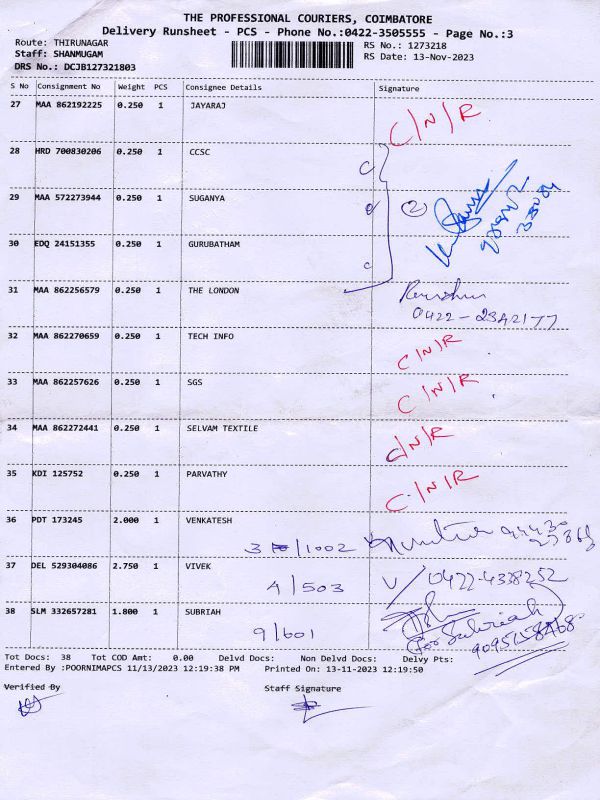 THE PROFESSIONAL COURIERS, COIMBATORE
Delivery Runsheet - PCS - Phone No.:0422-3505555 - Page No.:3
Route: THIRUNAGAR RS No.: 1273218
Staff: SHANMUGAM RS Date: 13-Nov-2023
DRS No.: DCJB127321803
S No Consignment No Weight PCS Consignee Details Signature
27 MAA 862192225 0.250 1 JAYARAJ C/N/R
28 HRD 700830206 0.250 1 CCSC
29 MAA 572273944 0.250 1 SUGANYA (2)
30 EDQ 24151355 0.250 1 GURUBATHAM
31 MAA 862256579 0.250 1 THE LONDON
32 MAA 862270659 0.250 1 TECH INFO C/N/R
33 MAA 862257626 0.250 1 SGS C/N/R
34 MAA 862272441 0.250 1 SELVAM TEXTILE C/N/R
35 KDI 125752 0.250 1 PARVATHY C/N/R
36 PDT 173245 2.000 1 VENKATESH /1002
37 DEL 529304086 2.750 1 VIVEK 4/503 0422-4338252
38 SLM 332657281 1.800 1 SUBRIAH 9/601 For Subriah
Tot Docs: 38 Tot COD Amt: 0.00 Delvd Docs: Non Delvd Docs: Delvy Pts:
Entered By :POORNIMAPCS 11/13/2023 12:19:38 PM Printed On: 13-11-2023 12:19:50
Verified By Staff Signature